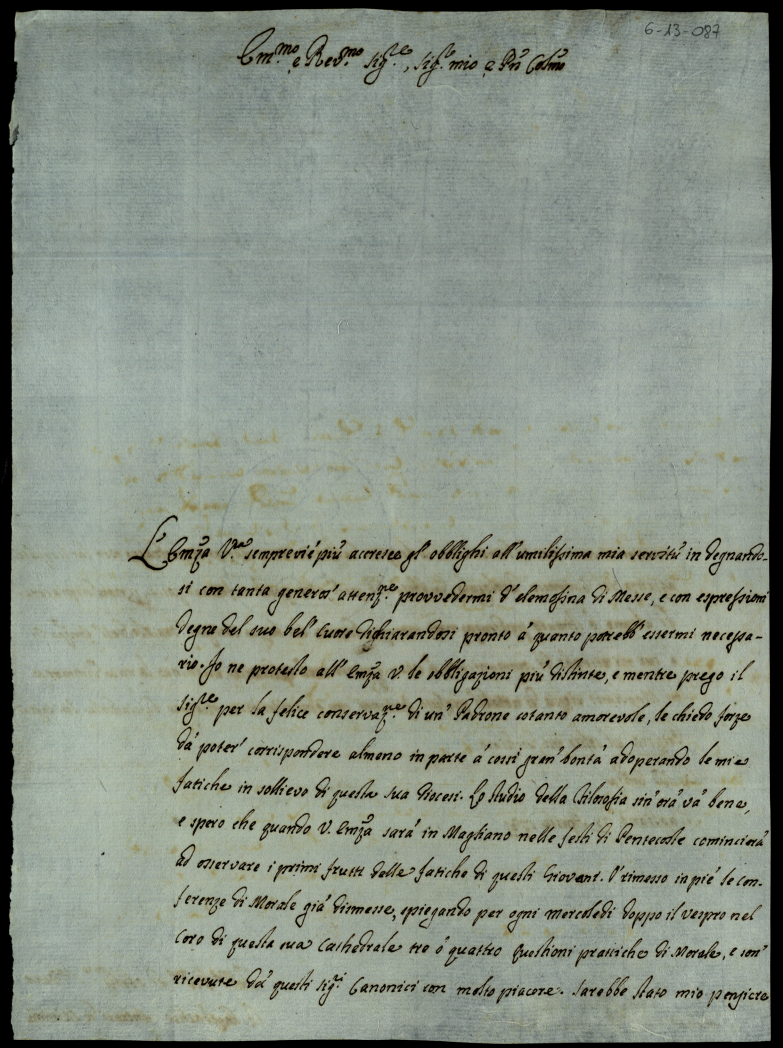 6-13-087
Em.mo e Rev.mo Sig.re, Sig.re mio e Prñ Colmo
L'Emza V.ra semprevié più accresce gl'obblighi all'umilissima mia servitù in degnando-
si con tanta generos' attenz.ne provvedermi d'elemosina di Messe, e con espressioni
degne del suo bel Cuore dichiarandosi pronto à quanto potrebb' essermi necessa-
rio. Io ne protesto all'Emza V. le obbligazioni più distinte, e mentre prego il
Sig.re per la felice conservaz.ne di un' Padrone cotanto amorevole, le chiedo forze
dà poter' corrispondere almeno in parte à cossi gran' bontà adoperando le mie
fatiche in sollievo di questa sua Diocesi. Lo studio della Filosofia sin'orà và bene,
e spero che quando V. Emza sarà in Magliano nelle festi di Pentecoste comincierà
ad osservare i primi frutti delle fatiche di questi Giovani. O' rimesso in piè le con-
ferenze di Morale già dismesse, spiegando per ogni mercoledi doppo il vespro nel
Coro di questa sua Cathedrale tre ò quattro questioni prattiche di Morale, e son'
ricevute dà questi Sig.ri Canonici con molto piacere. Sarebbe stato mio pensiere